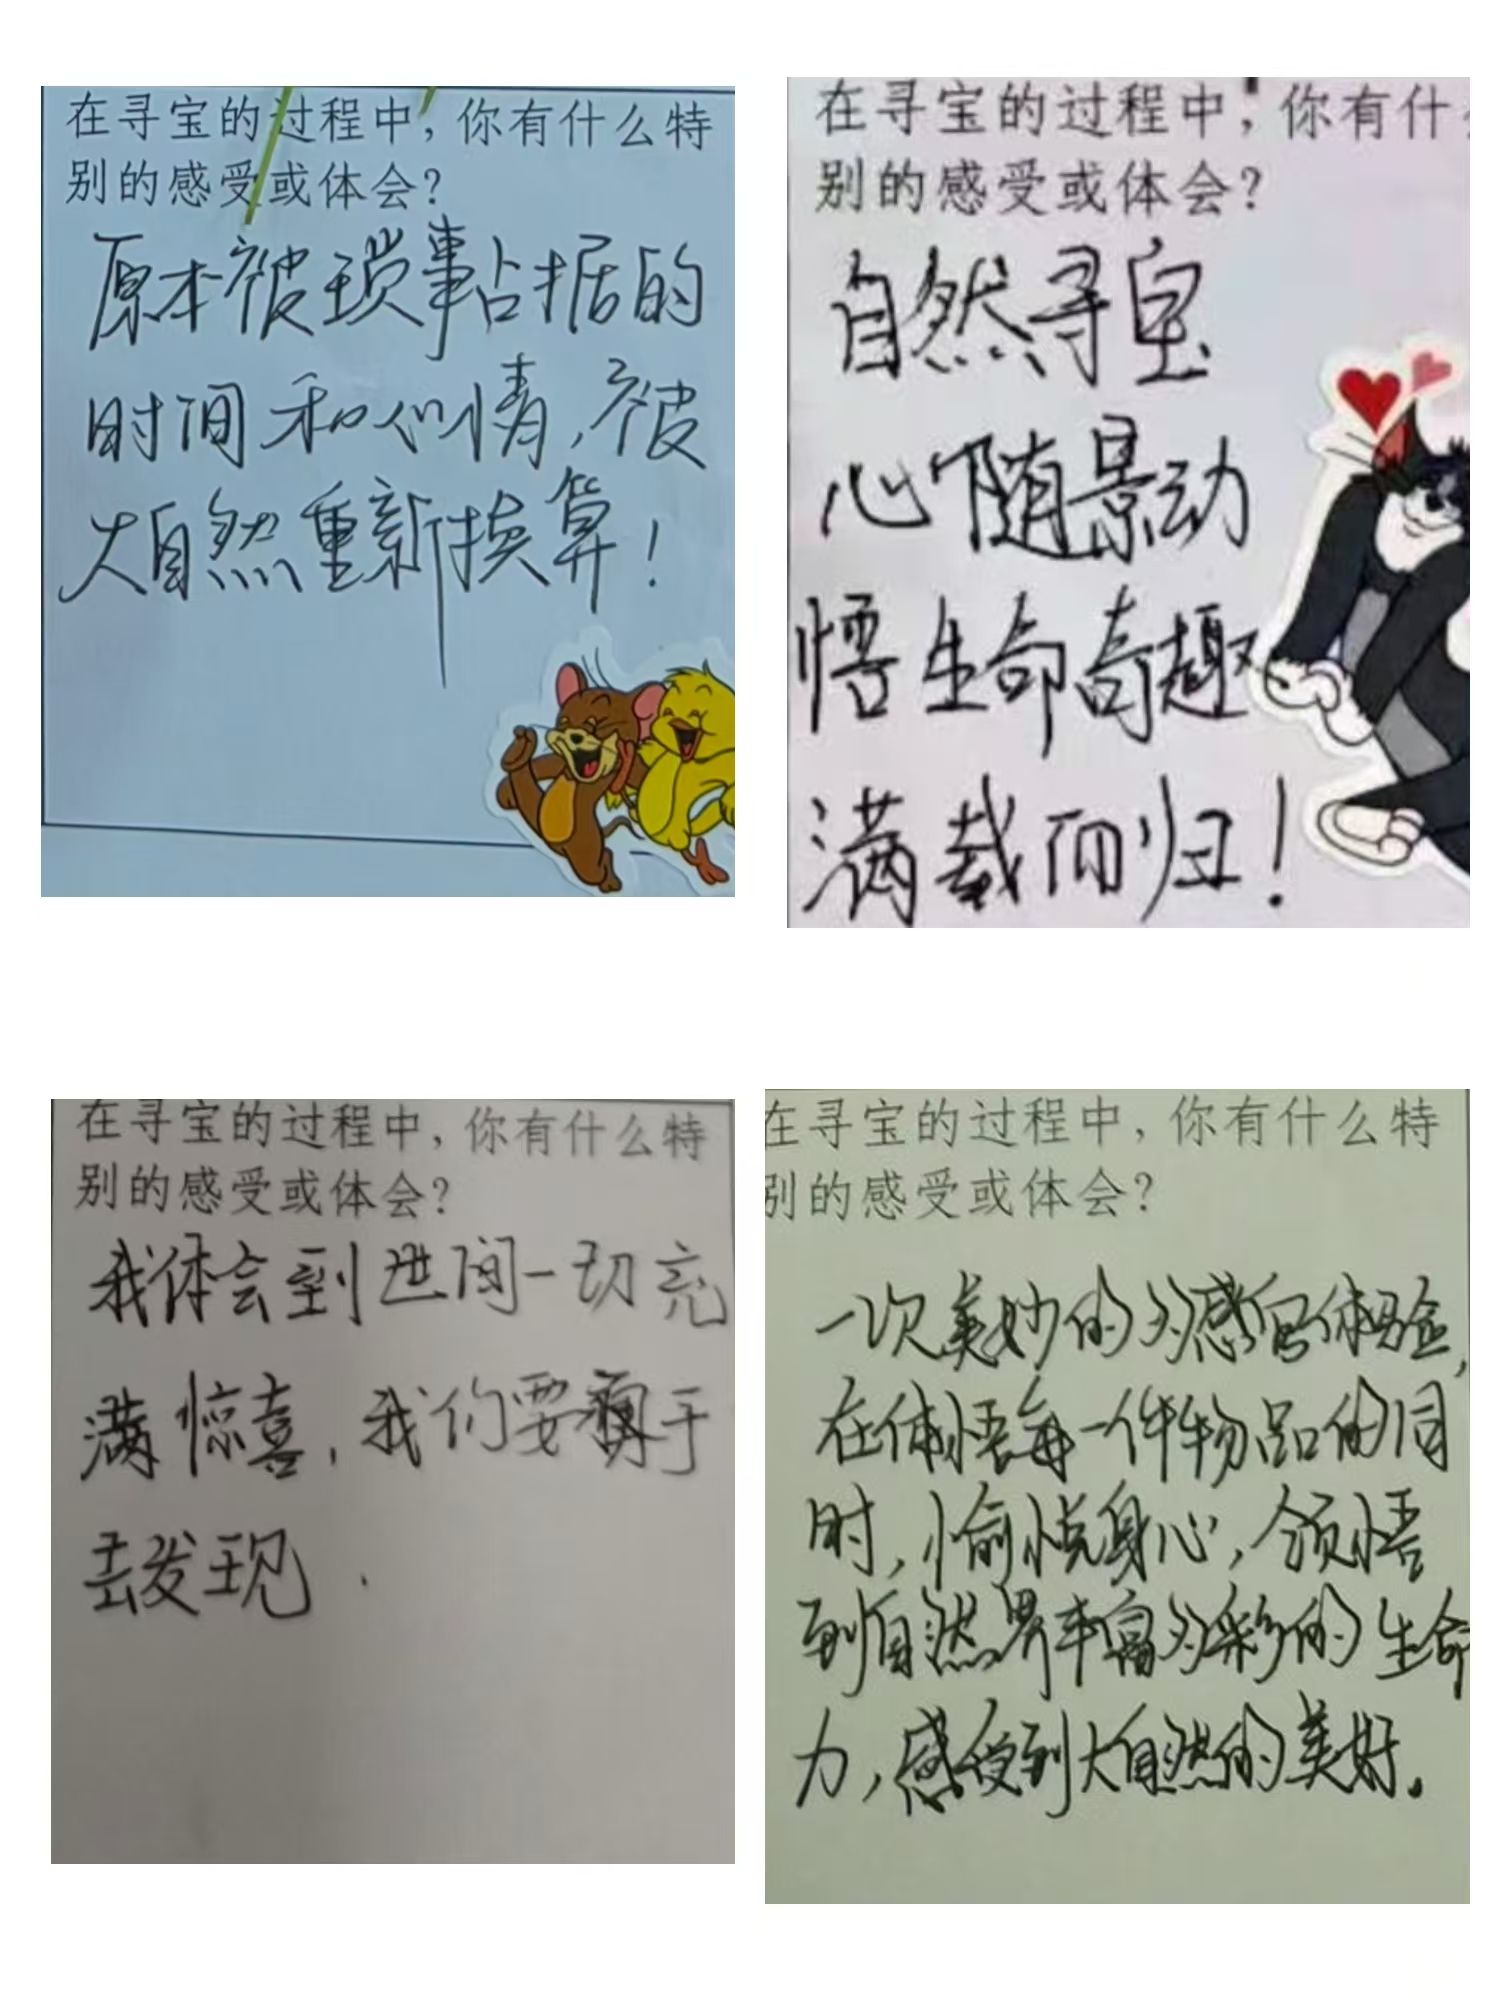 在寻宝的过程中，你有什么特
别的感受或体会？
原本被琐事占据的
时间和心情，被
大自然重新换算！
在寻宝的过程中，你有什
别的感受或体会？
自然寻宝
心随景动
悟生命奇趣
满载而归！
在寻宝的过程中，你有什么特
别的感受或体会？
我体会到世间一切充
满惊喜，我们要勇于
去发现.
在寻宝的过程中，你有什么特
别的感受或体会？
一次美妙的多感官体验，
在体悟每一件物品的同
时，愉悦身心，领悟
到自然界丰富多彩的生命
力，感受到大自然的美好。